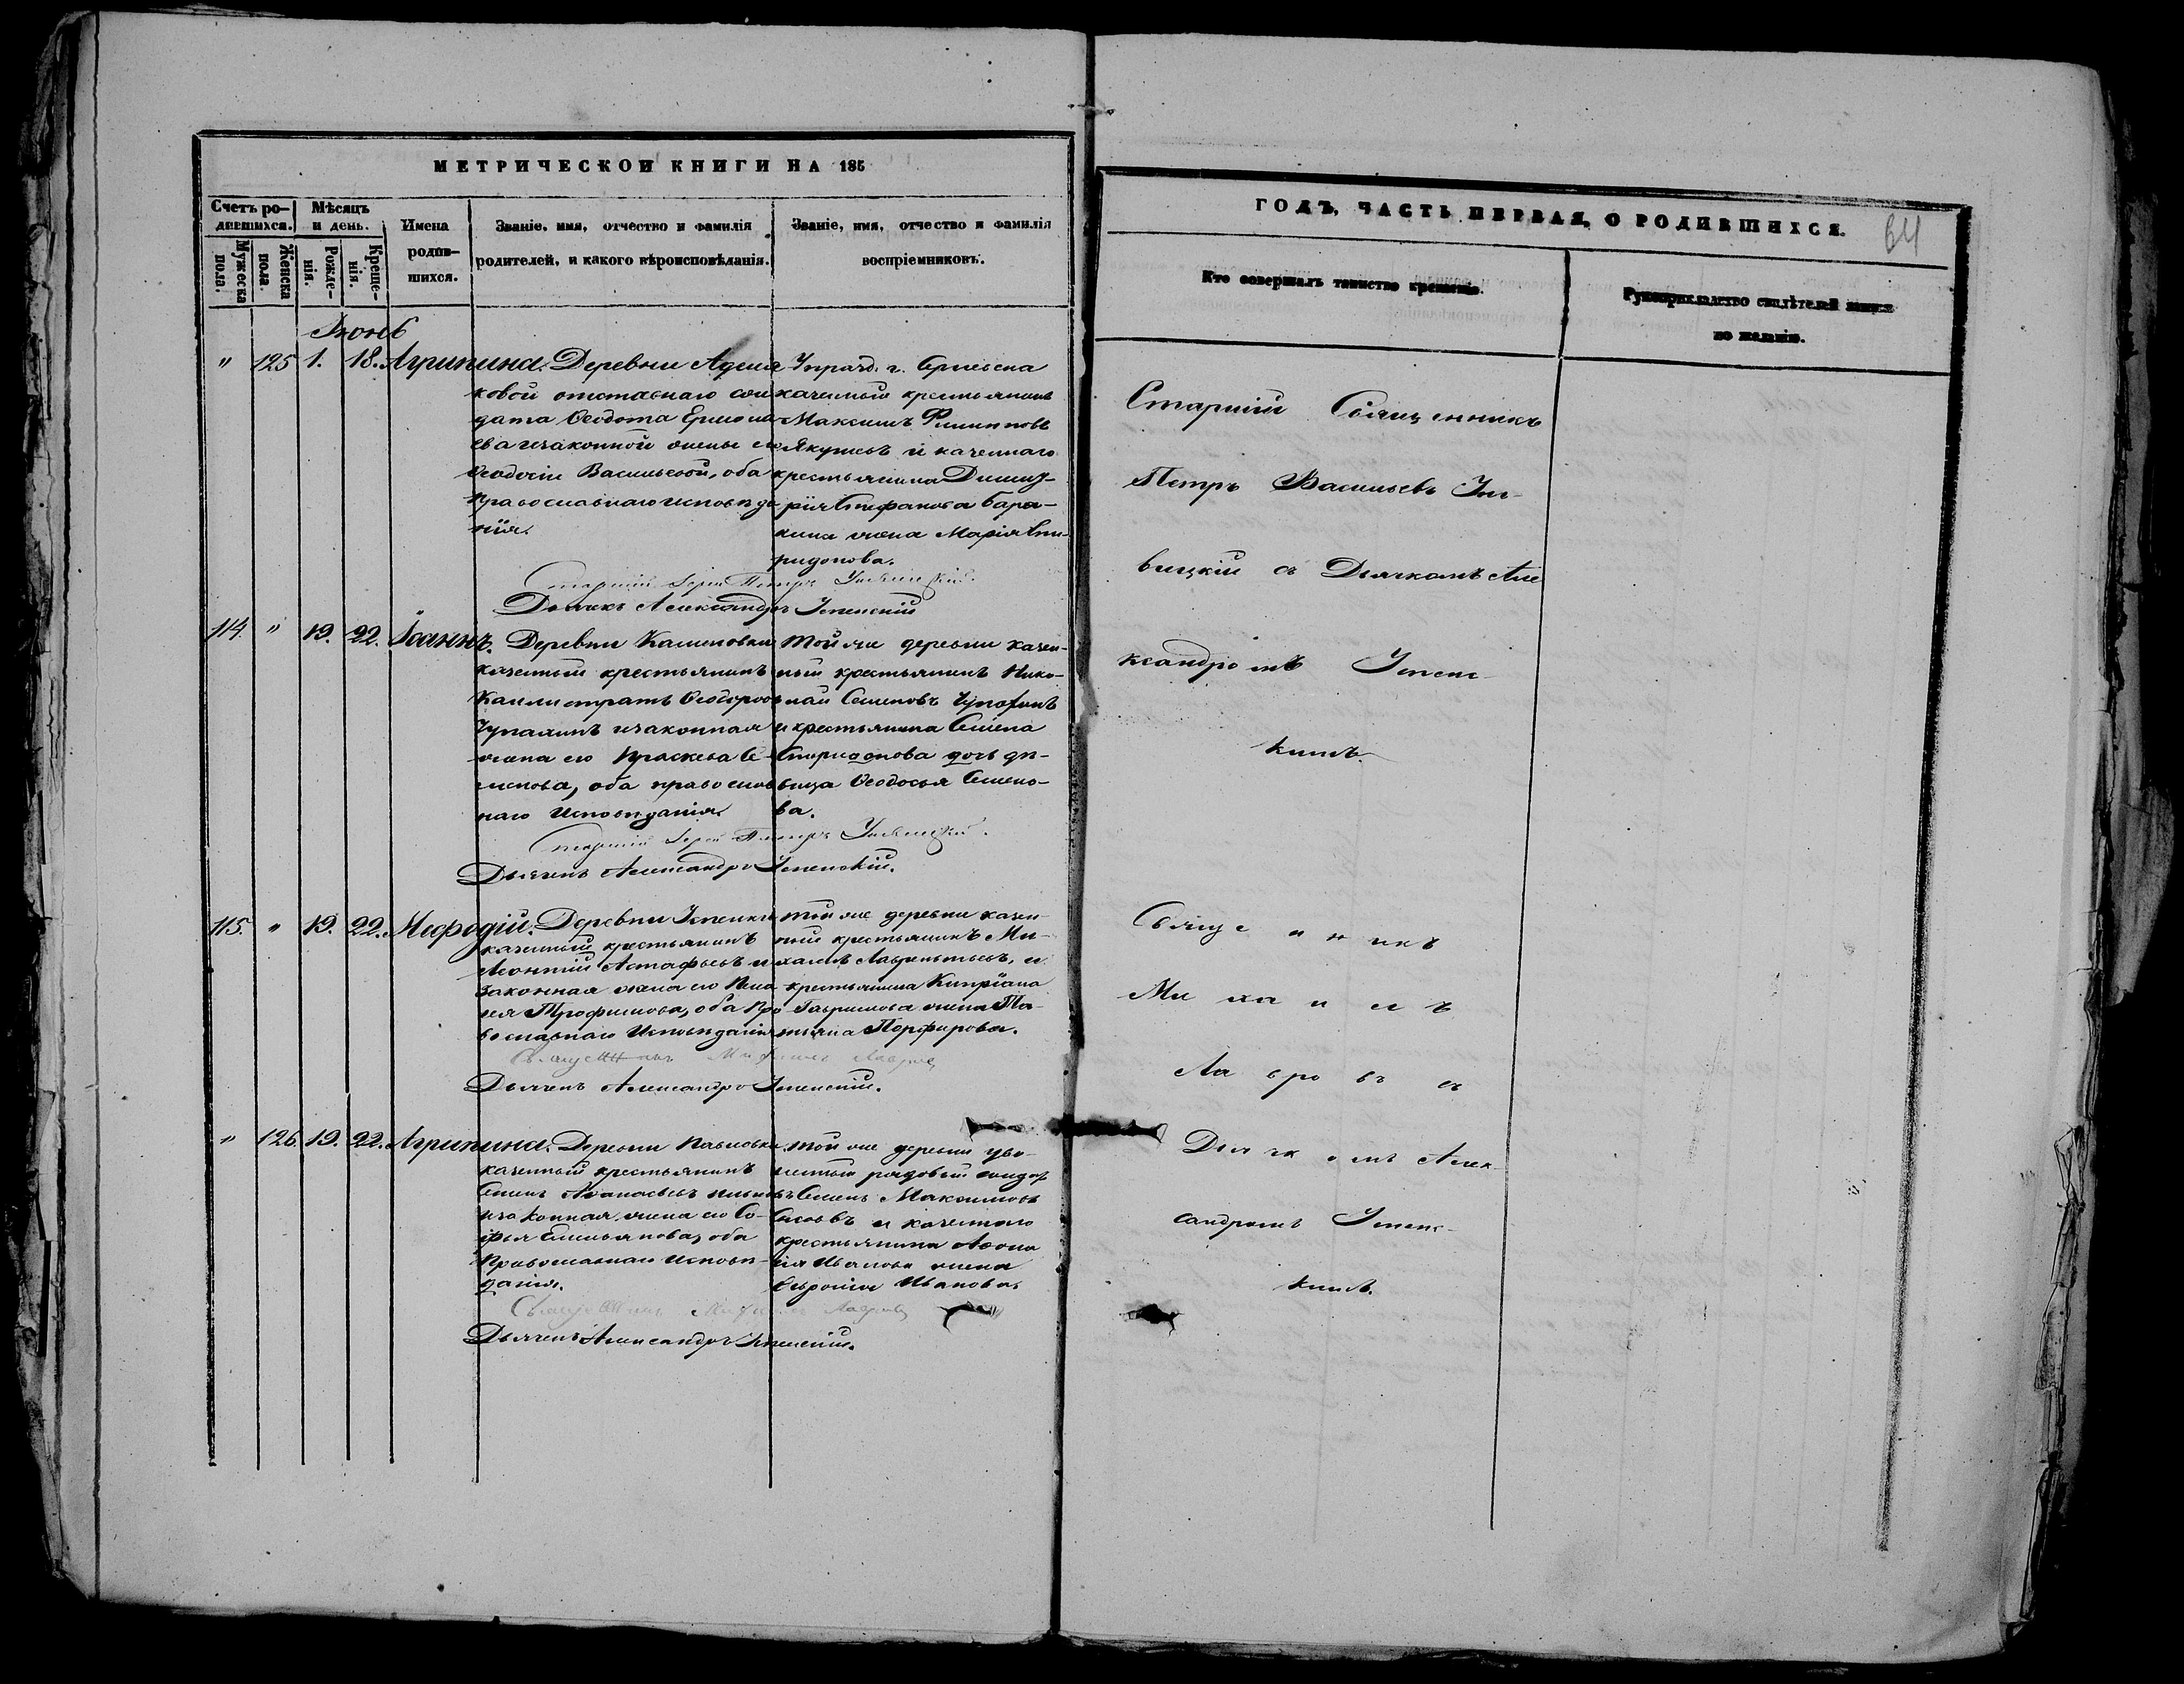 МЕТРИЧЕСКОЙ КНИГИ НА 185
Счетъ ро-
дившихся.
Мѣсяцъ
и день.
Мужеска
пола.
Женска
пола.
Рожде-
нія.
Креще-
нія.
Имена
родив-
шихся.
Званіе, имя, отчество и фамилія
родителей, и какого вѣроисповѣданія.
Званіе, имя, отчество и фамилія
воспріемниковъ.
Іюнь
" 125 1. 18. Агрипина.
Деревни
ковой отставнаго сол
дата Ѳеодота
ева изаконной жены его
Ѳеодосіи Васильевой, оба
православнаго исповѣда
нія.
Упразд. г. Сергіевска
казенный крестьянинъ
Максимъ Филипповъ
Якушевъ и казеннаго
крестьянина Димит-
рія Стефанова Бара-
кина жена Марія Спи-
ридонова.
Старшій Іерей Петръ
Дьячекъ Александръ Успенскій
114. " 19. 22. Іоаннъ.
Деревни Калиновки
казенный крестьянинъ
Каллистратъ Ѳеодоровъ
изаконная
жена его Праскева Се-
менова, оба православ
наго исповѣданія.
Той же деревни казен-
ный крестьянинъ Нико-
лай Семеновъ
и крестьянина Семена
Спиридонова дочь дѣ-
вица Ѳеодосья Семено-
ва.
Старшій Іерей Петръ
Дьячекъ Александръ Успенскій.
115. " 19. 22. Меѳодій.
Деревни Успенки
казенный крестьянинъ
Леонтій Астафьевъ и
законная жена его
Трофимова, оба пра
вославнаго исповѣданія
той же деревни казен-
ный крестьянинъ Ми-
хаилъ Лаврентьевъ, и
крестьянина Кипріана
Гаврилова жена Та-
тьяна Порфирова.
Священникъ Михаилъ Лавровъ
Дьячекъ Александръ Успенскій.
" 126 19. 22. Агрипина.
Деревни Павловки
казенный крестьянинъ
Семенъ Аѳанасьевъ
изаконная жена его Со-
фья Емельянова, оба
православнаго исповѣ-
данія.
той же деревни уво-
ленный рядовый солдат
Семенъ Максимовъ
и казеннаго
крестьянина Аѳона
сія Иванова жена
Иванова.
Священникъ Михаилъ Лавровъ
Дьячекъ Александръ Успенскій.
ГОДЪ, ЧАСТЬ ПЕРВАЯ, О РОДИВШИХСЯ.
64
Кто совершалъ таинство крещенія.
Рукоприкладство свидѣтелей записи
по желанію.
Старшій Священникъ
Петръ Васильевъ
вицкій съ Дьячкомъ Але
ксандромъ Успенс-
кимъ.
Священникъ
Михаилъ
Лавровъ съ
Дьячкомъ Алек-
сандромъ Успенс-
кимъ.